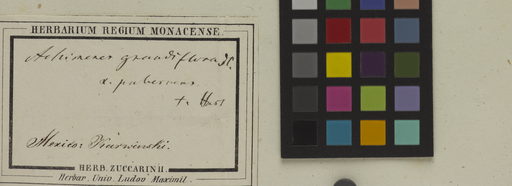 HERBARIUM REGIUM MONACENSE.
Achimenes grandiflora DC.
α. pubescens.
Mexico: Karwinski.
HERB. ZUCCARINII.
Herbar. Univ. Ludov. Maximil.